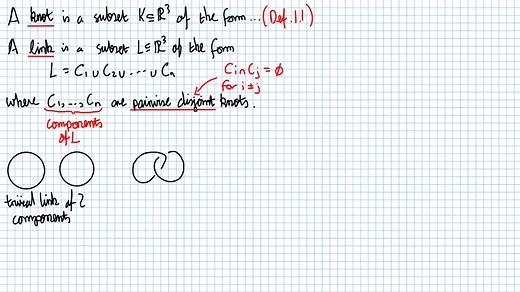 A knot is a subset K⊆ℝ³ of the form ... (Def. 1.1)
A link is a subset L⊆ℝ³ of the form
L = C₁ ∪ C₂ ∪ ... ∪ Cₙ
Cᵢ∩Cⱼ = ∅
for i ≠ j
where C₁, ..., Cₙ are pairwise disjoint knots.
components
of L
trivial link of 2
components